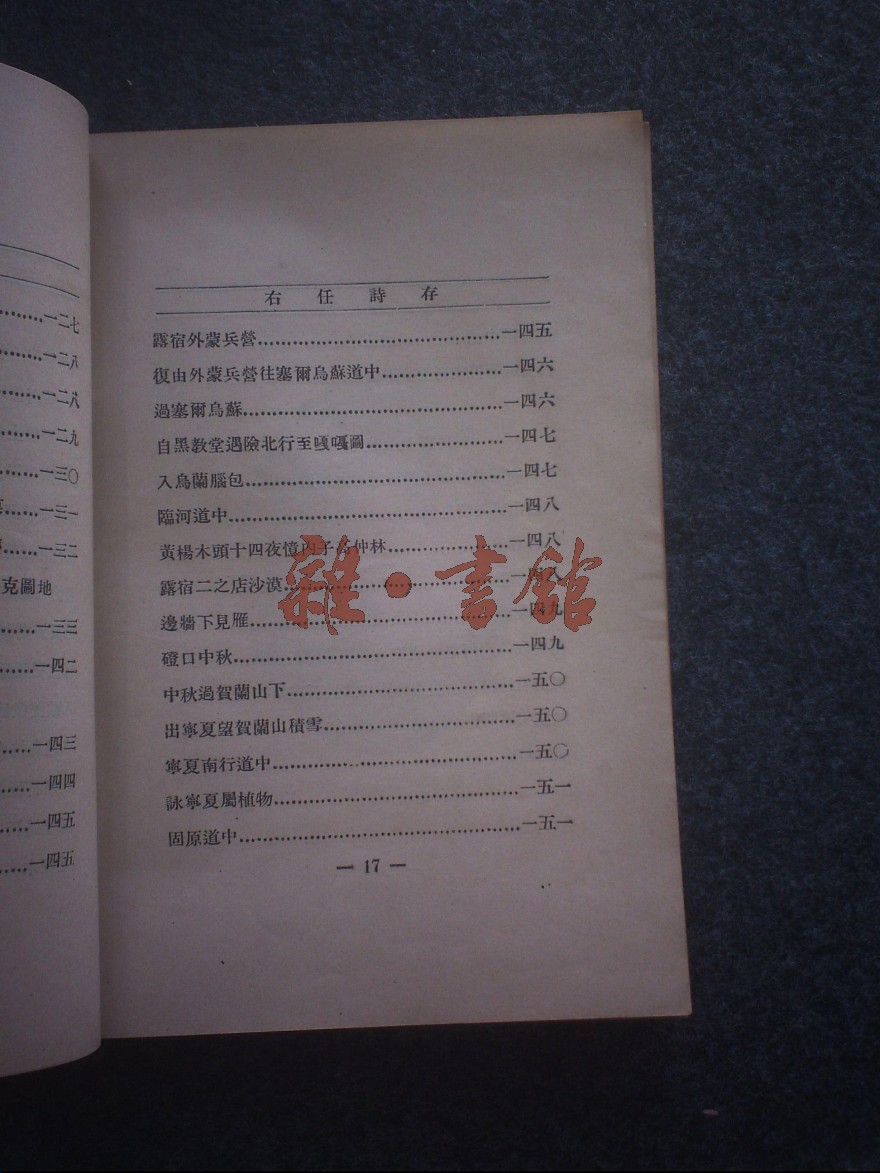 一二七
一二八
一二八
一二九
一三〇
一三一
一三二
克圖地
一三三
一四二
一四三
一四四
一四五
一四五
右任詩存
露宿外蒙兵營……一四五
復由外蒙兵營往塞爾烏蘇道中……一四六
過塞爾烏蘇……一四六
自黑教堂遇險北行至嘎嘎圖……一四七
入烏蘭腦包……一四七
臨河道中……一四八
黃楊木頭十四夜憶內子高仲林……一四八
露宿二之店沙漠……一四八
邊牆下見雁……一四九
磴口中秋……一四九
中秋過賀蘭山下……一五〇
出寧夏望賀蘭山積雪……一五〇
寧夏南行道中……一五〇
詠寧夏屬植物……一五一
固原道中……一五一
— 17 —
雜·書館